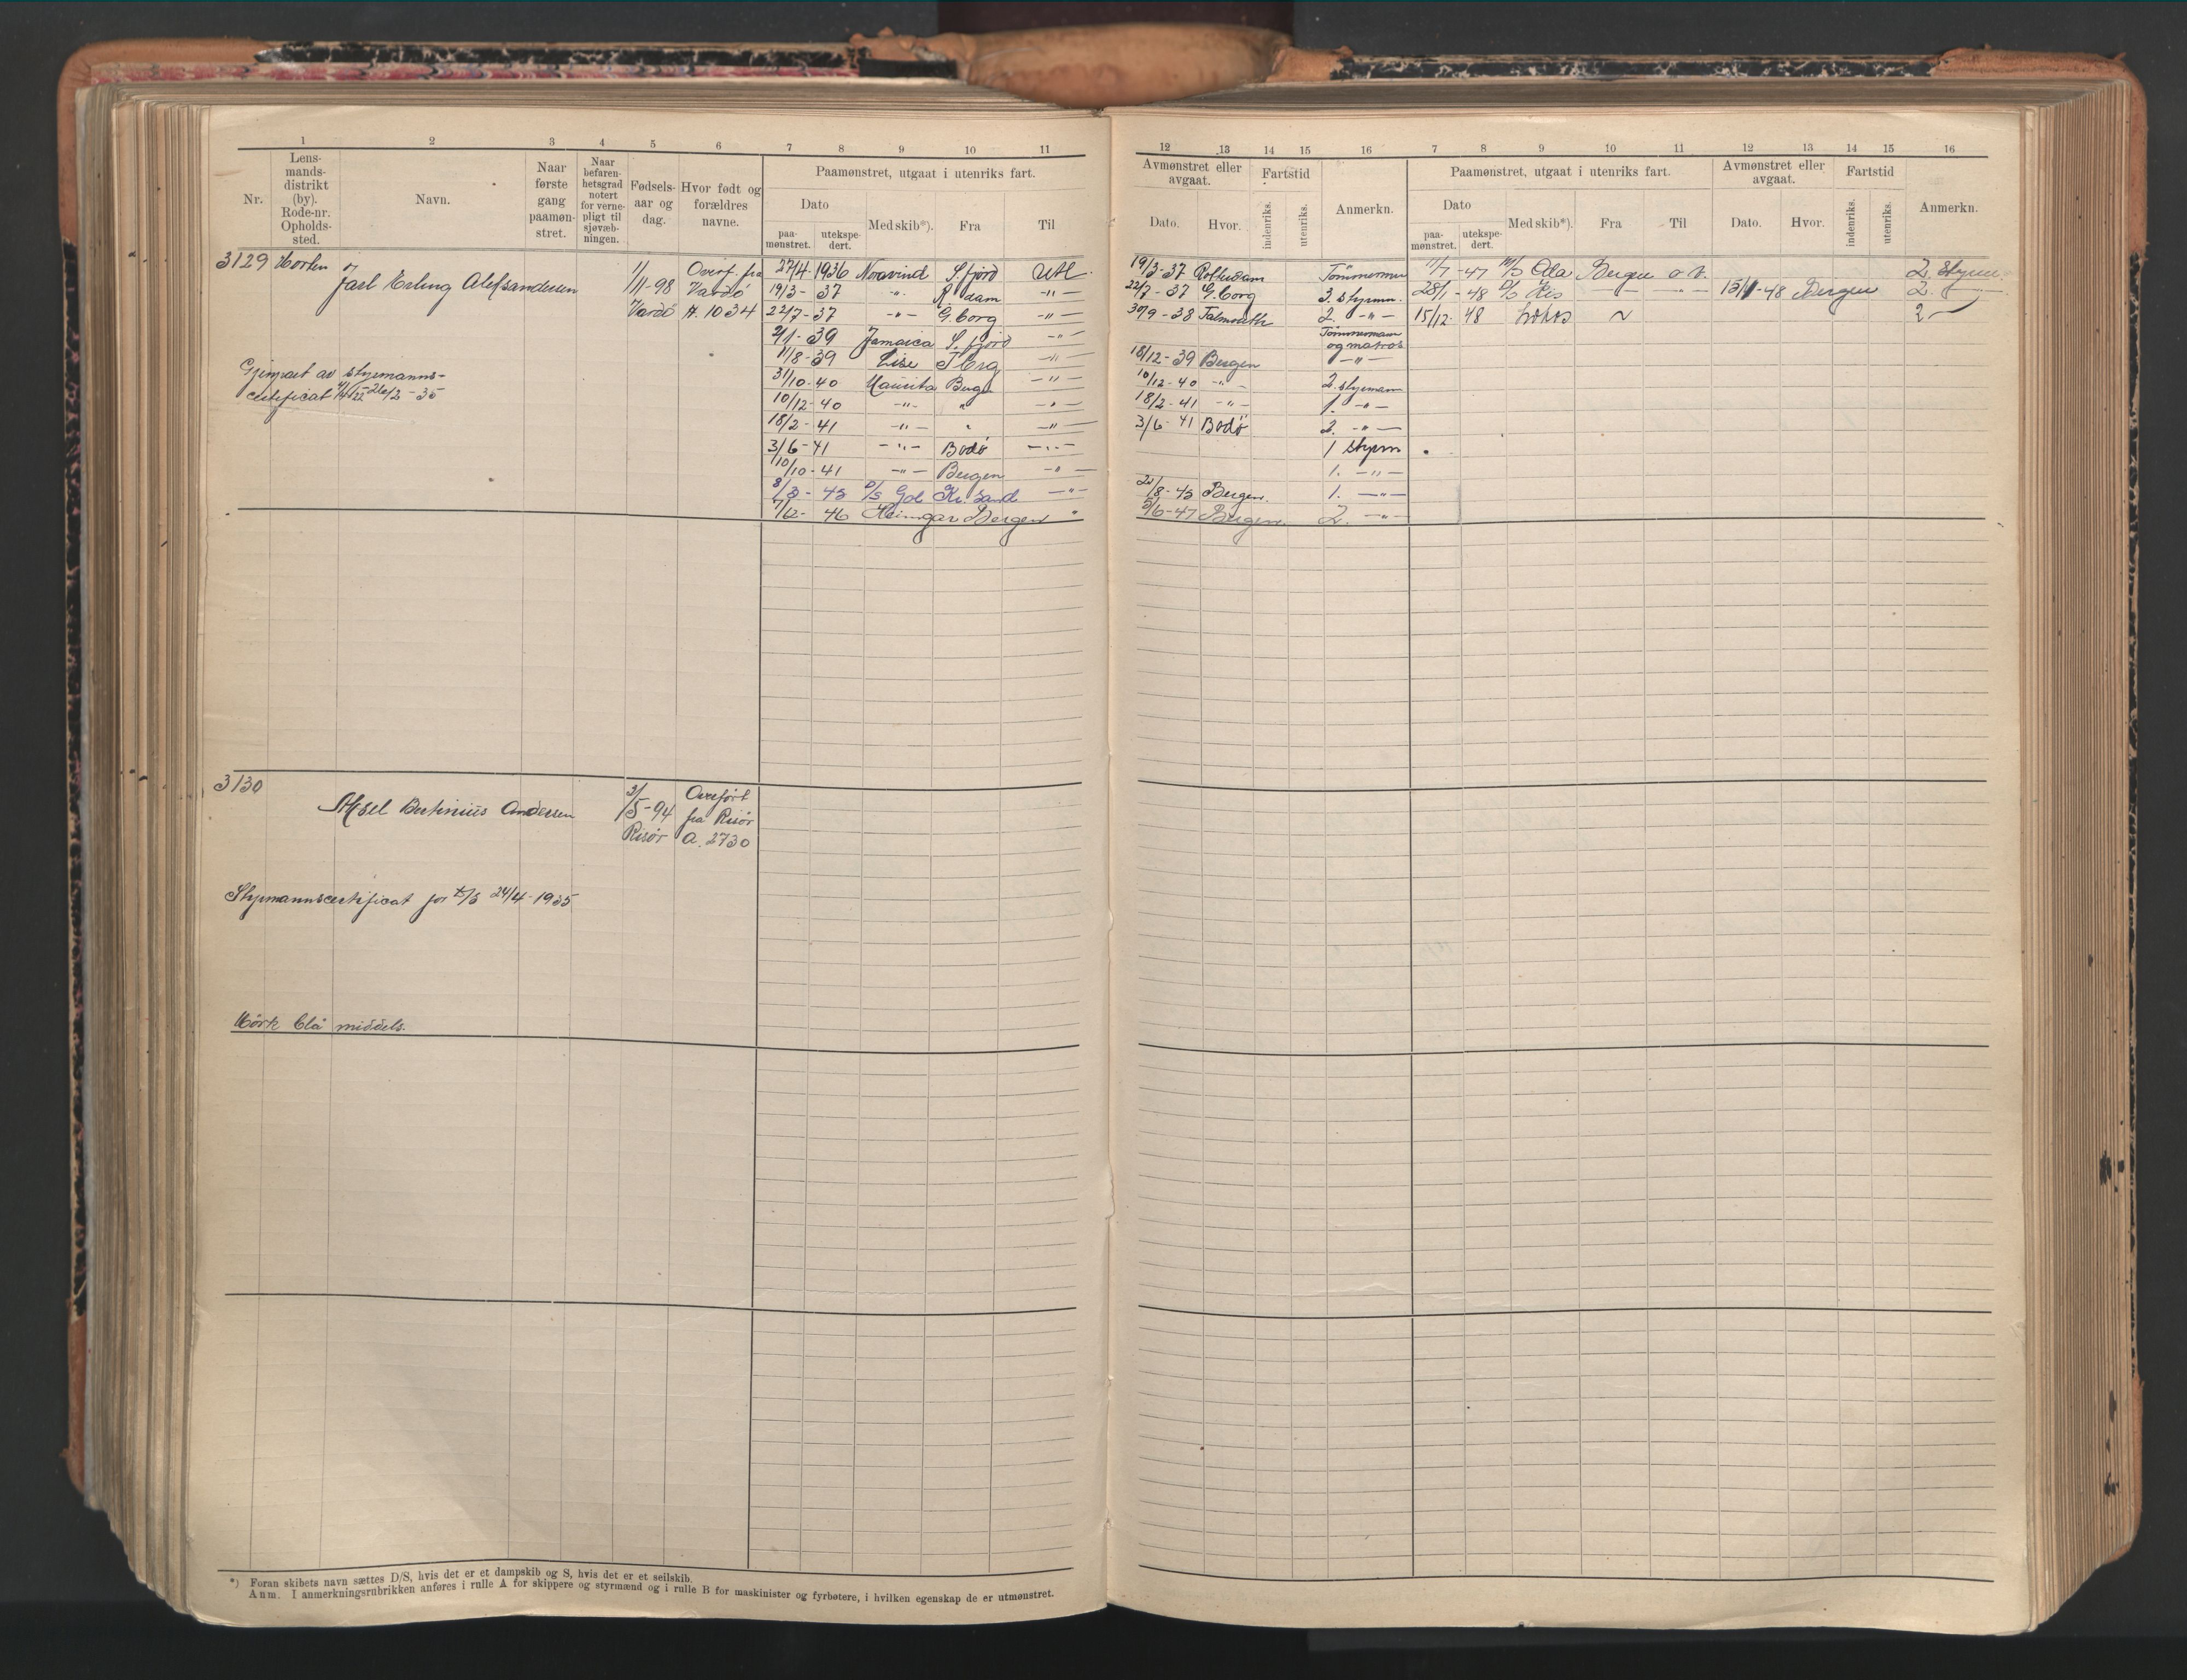 1 2 3 4 5 6 7 8 9 10 11
Nr. Lens-mands-distrikt (by). Rode-nr. Opholds-sted. Navn. Naar første gang paamøn-stret. Naar befaren-hetsgrad notert for verne-pligt til sjøvæb-ningen. Fødsels-aar og dag. Hvor født og forældres navne. Paamønstret, utgaat i utenriks fart.
Dato Med skib*). Fra Til
paa-mønstret. utekspe-dert.
3129 Horten Jarl Erling Aleksandersen 1/11-98 Vardö Overf. fra Vardö A. 1034
27/4-1936 Noravind S.fjord Utl.
19/3-37 -"- R.dam -"-
22/7-37 -"- G.borg -"-
2/1-39 Jamaica S.fjord -"-
11/8-39 Lise T.brg -"-
31/10-40 Maurita Bergen -"-
10/12-40 -"- " -"-
18/2-41 -"- " -"-
3/6-41 -"- Bodö -"-
10/10-41 -"- Bergen -"-
8/3-43 D/S Gol Kr.sand -"-
7/12-46 Heimgar Bergen "
Gjenpart av styrmanns-
certificat 26/2-35
3130
Aksel Bertinius Andersen 2/5-94 Risør Overført fra Risør A. 2730
Styrmannscertificat for D/S 24/4-1935
Mörk blå middels.
*) Foran skibets navn sættes D/S, hvis det er et dampskib og S, hvis det er et seilskib.
Anm. I anmerkningsrubrikken anføres i rulle A for skippere og styrmænd og i rulle B for maskinister og fyrbøtere, i hvilken egenskap de er utmønstret.
12 13 14 15 16 7 8 9 10 11 12 13 14 15 16
Avmønstret eller avgaat. Fartstid Anmerkn. Paamønstret, utgaat i utenriks fart. Avmønstret eller avgaat. Fartstid Anmerkn.
Dato. Hvor. indenriks. utenriks. Dato paa-mønstret. utekspe-dert. Med skib*). Fra Til Dato. Hvor. indenriks. utenriks.
19/3-37 Rotterdam Tömmerman 11/7-47 M/S Ola Bergen o.v. 2. styrm
22/7-37 G.borg 3. styrmn. 28/1-48 D/S His -"- 13/11-48 Bergen 2. -"-
30/9-38 Falmouth 2. -"- 15/12-48 2 -
Tömmermann
og matros
18/12-39 Bergen -"-
10/12-40 -"- 2. styrmann
18/2-41 -"- 1. -"-
3/6-41 Bodö 2. -"-
1 styrm
1. -"-
20/8-43 Bergen. 1. -"-
5/6-47 Bergen. 2. -"-